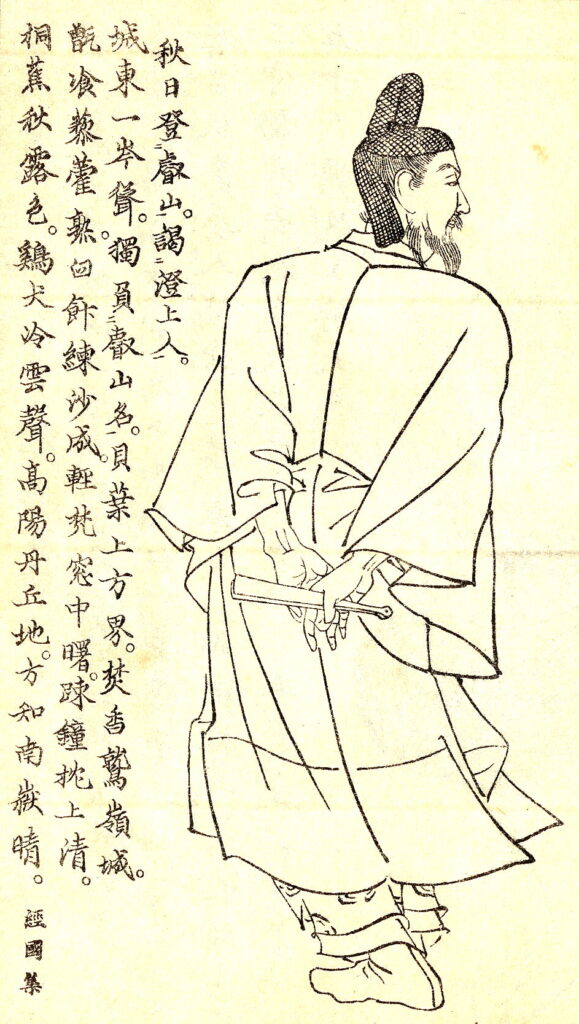 秋日登㆓叡山㆒。謁㆓澄上人㆒。
城東一岑聳。獨負㆓叡山名㆒。貝葉上方界。焚香鷲嶺城。
甑飡藜藿熟。臼飰練沙成。輕梵窓中曙。踈鐘枕上清。
桐蕉秋露色。鷄犬冷雲聲。高陽丹丘地。方知南嶽晴。 經國集